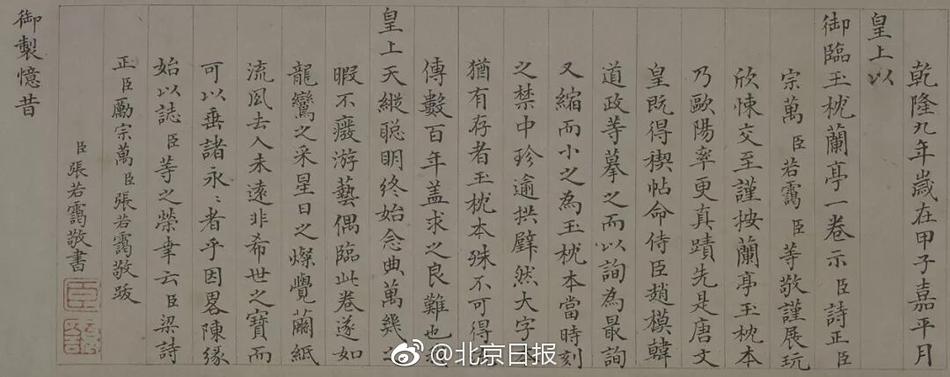 乾隆九年歲在甲子嘉平月
皇上以
御臨玉枕蘭亭一卷示臣詩正臣
宗萬臣若靄臣等敬謹展玩
欣悚交至謹按蘭亭玉枕本
乃歐陽率更真蹟先是唐文
皇既得禊帖命侍臣趙模韓
道政等摹之而以詢為最詢
又縮而小之為玉枕本當時刻
之禁中珍逾拱璧然大字
猶有存者玉枕本殊不可得
傳數百年蓋求之良難也
皇上天縱聰明終始念典萬幾之
暇不廢游藝偶臨此卷遂如
龍鸞之采星日之燦覺繭紙
流風去人未遠非希世之寶而
可以垂諸永〻者乎因畧陳緣
始以誌臣等之榮幸云臣梁詩
正臣勵宗萬臣張若靄敬跋
臣張若靄敬書
御製憶昔
@北京日报